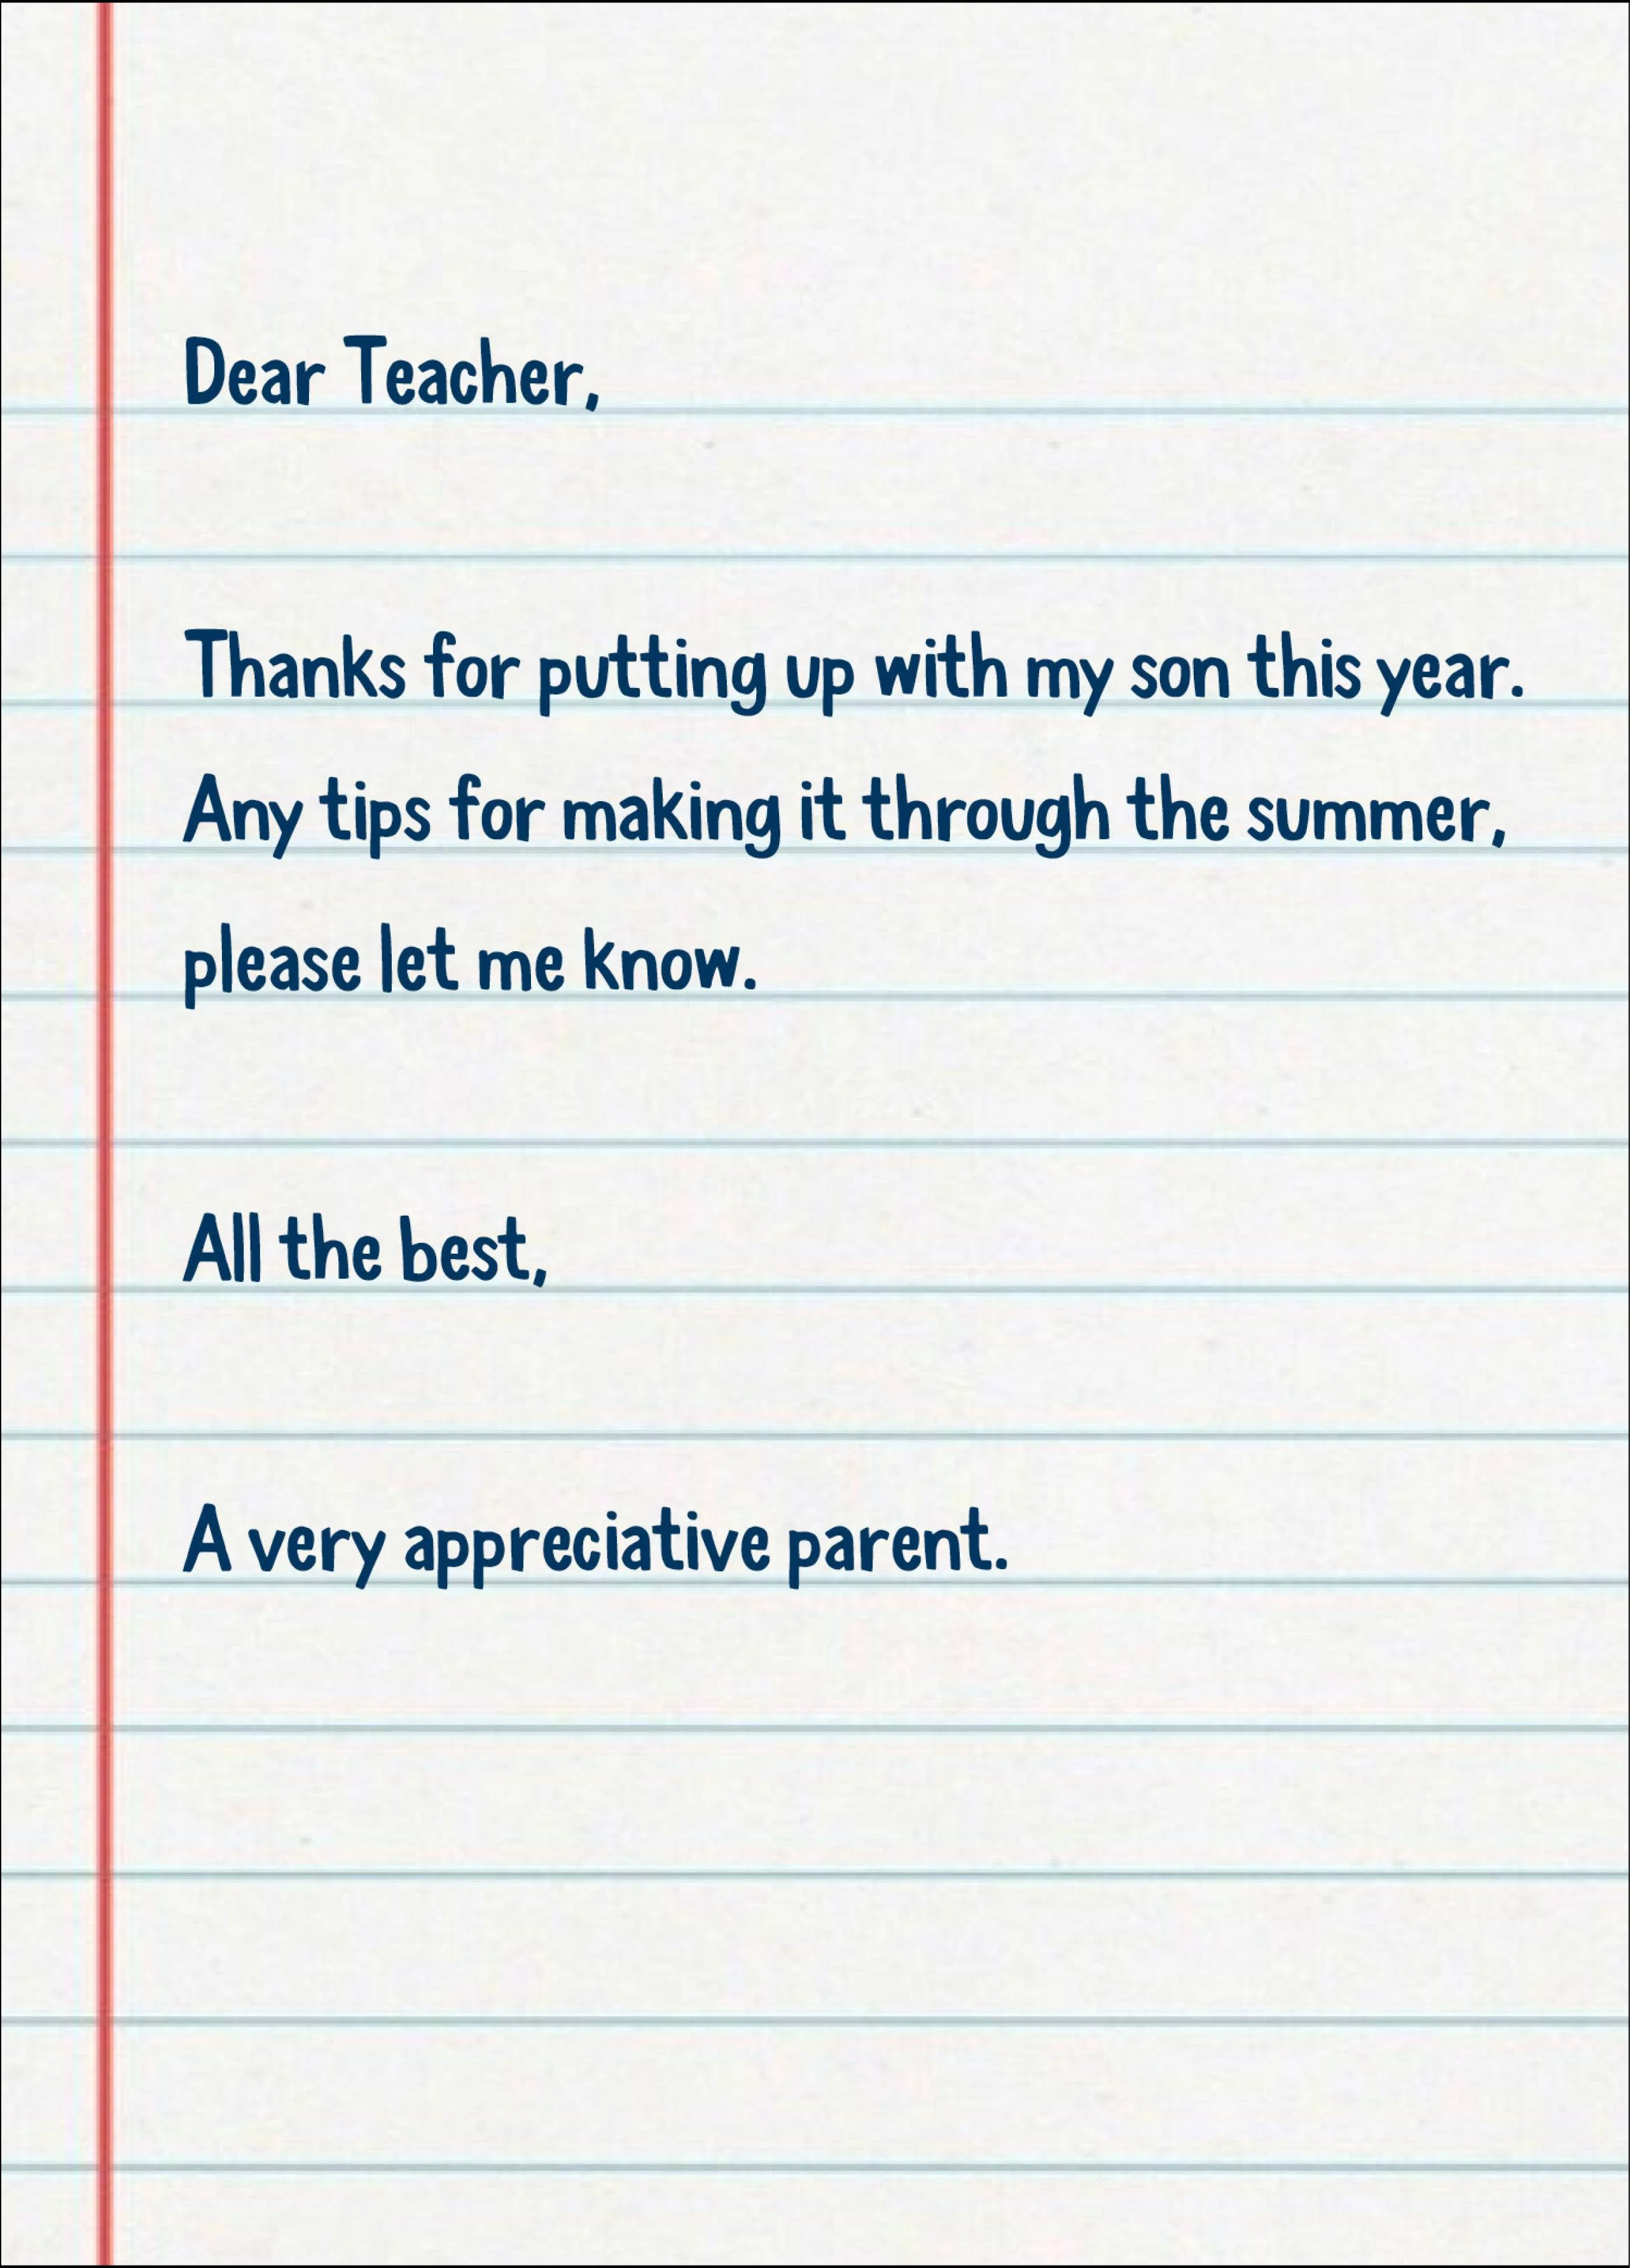 Dear Teacher,
Thanks for putting up with my son this year.
Any tips for making it through the summer,
please let me know.
All the best,
A very appreciative parent.